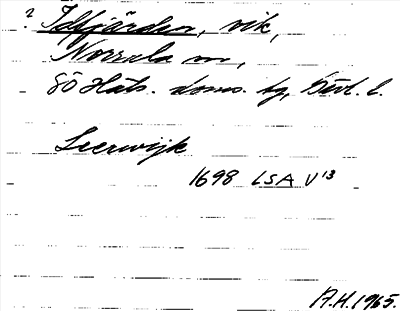 ? Idfjärden, vik,
Norrala sn,
SÖ Häls. doms. tg, Gävl. l.
Leerwijk
1698 LSA V 13
A.H. 1965.